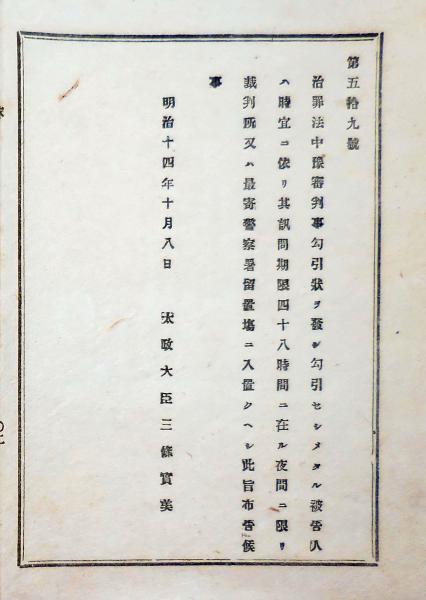 第五拾九號
治罪法中豫審判事勾引狀ヲ發シ勾引セシメタル被告人
ハ時宜ニ依リ其訊問期限四十八時間ニ在ル夜間ニ限リ
裁判所又ハ最寄警察署留置塲ニ入置クヘシ此旨布告候
事
明治十四年十月八日 太政大臣三條實美